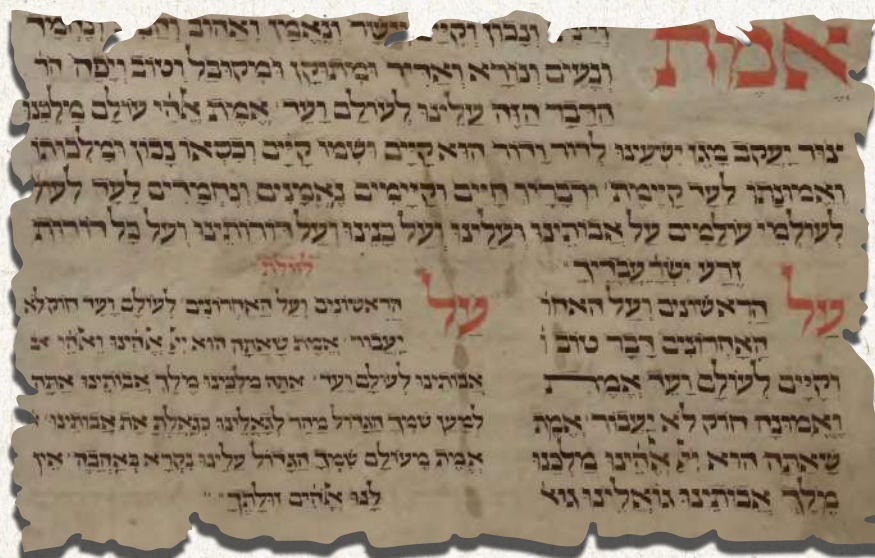 אמת
ונכון וקיים וישר ונאמן ואהוב
ונעים ונורא ואדיר ומתוקן ומיקובל וטוב ויפה הד
הדבר הזה עלינו לעולם ועד אמת אלהי עולם מלכנו
צור יעקב מגן ישעינו לדור ודור הוא קיים ושמו קיים וכסאו נכון ומלכותו
ואמונתו לעד קיימת ודבריו חיים וקיימים נאמנים ונחמדים לעד לעול
לעולמי עולמים על אבותינו ועלינו ועל בנינו ועל דורותינו ועל כל דורות
זרע ישר עבדיך
על הראשונים ועל האחו
האחרונים דבר טוב ו
וקיים לעולם ועד אמת
ואמונה חוק לא יעבור אמת
שאתה הוא ייי אלהינו מלכנו
מלך אבותינו גואלינו גוא
לזולת
על הראשונים ועל האחרונים לעולם ועד חוק לא
יעבור אמת שאתה הוא ייי אלהינו ואלהי אב
אבותינו לעולם ועד אתה מלכנו מלך אבותינו אתה
למען שמך הגדול מהר לגאלינו כגאלת את אבותינו א
אמת מעולם שמך הגדול עלינו נקרא באהבה אין
לנו אלהים זולתך